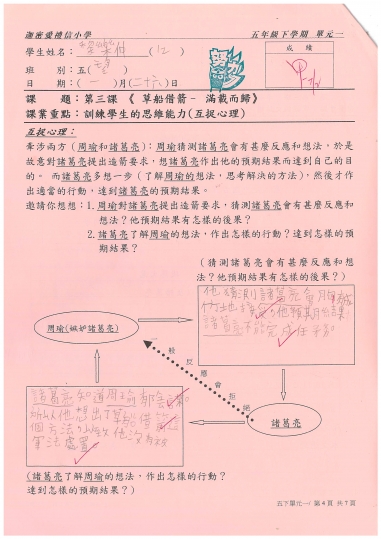 迦密愛禮信小學
五年級下學期 單元一
學生姓名：(12)
成績
班別：五(望)
日期：(一)月(二十六)日
努力
課題：第三課《草船借箭－滿載而歸》
課業重點：訓練學生的思維能力(互捉心理)
互捉心理：
牽涉兩方(周瑜和諸葛亮)：周瑜猜測諸葛亮會有甚麼反應和想法，於是
故意對諸葛亮提出造箭要求，想諸葛亮作出他的預期結果而達到自己的目
的。而諸葛亮多想一步(了解周瑜的想法，思考解決的方法)，然後才作
出適當的行動，達到諸葛亮的預期結果。
邀請你想想：1.周瑜對諸葛亮提出造箭要求，猜測諸葛亮會有甚麼反應和
想法？他預期結果有怎樣的後果？
2.諸葛亮了解周瑜的想法，作出怎樣的行動？達到怎樣的預
期結果？
(猜測諸葛亮會有甚麼反應和想
法？他預期結果有怎樣的後果？)
他猜測諸葛亮會
他預期的結果
諸葛亮不能完成任務
周瑜(嫉妒諸葛亮)
一般反應會拒絕
諸葛亮
諸葛亮知道周瑜
所以他想出了草船借箭
個方法
軍法處置
(諸葛亮了解周瑜的想法，作出怎樣的行動？
達到怎樣的預期結果？)
五下單元一/ 第4頁 共7頁